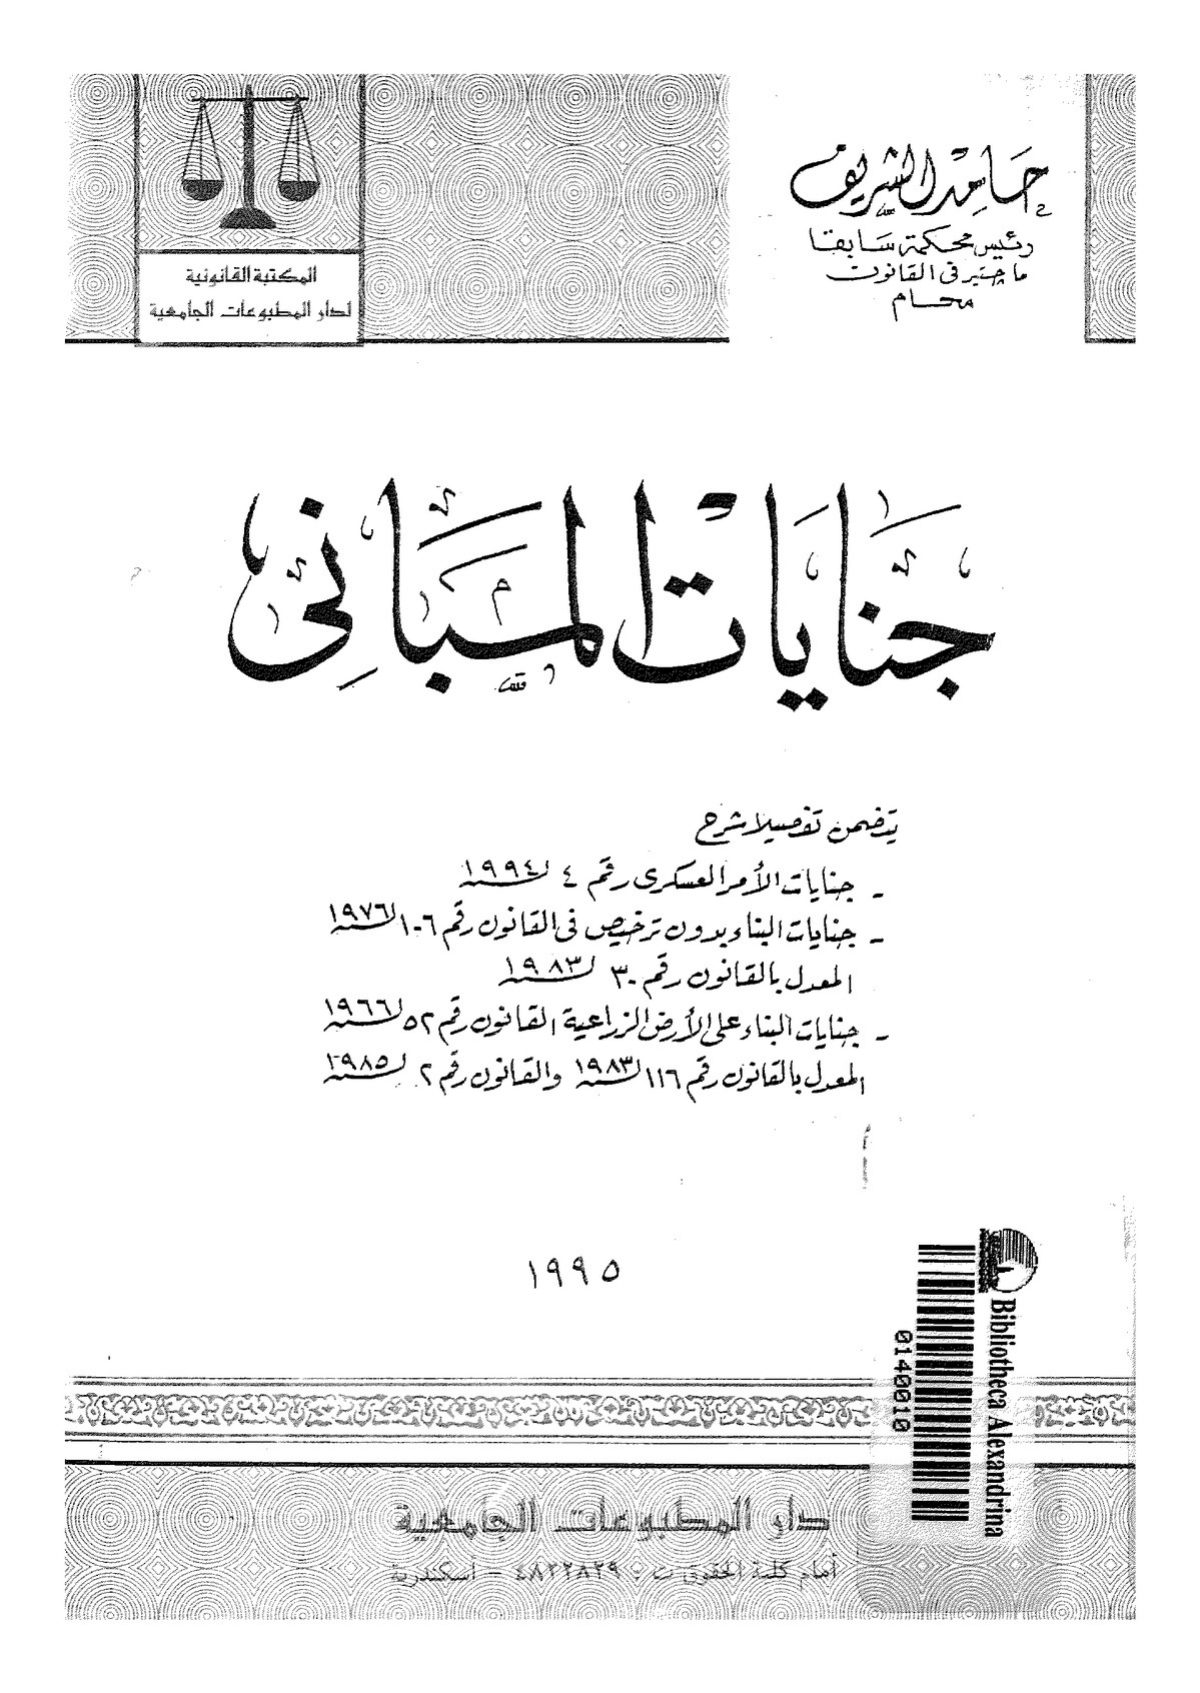 حامد الشريف
رئيس محكمة سابقا
ماجستير فى القانون
محام
المكتبة القانونية
لدار المطبوعات الجامعية
جنايات المبانى
يتضمن تفصيلا شرح
- جنايات الأمر العسكرى رقم ٤ لسنة ١٩٩٤
- جنايات البناء بدون ترخيص فى القانون رقم ١٠٦ لسنة ١٩٧٦
المعدل بالقانون رقم ٣٠ لسنة ١٩٨٣
- جنايات البناء على الأرض الزراعية القانون رقم ٥٢ لسنة ١٩٦٦
المعدل بالقانون رقم ١١٦ لسنة ١٩٨٣ والقانون رقم ٢ لسنة ١٩٨٥
١٩٩٥
Bibliotheca Alexandrina
0140010
دار المطبوعات الجامعية
أمام كلية الحقوق ت : ٤٨٢٢٨٢٩ - أسكندرية